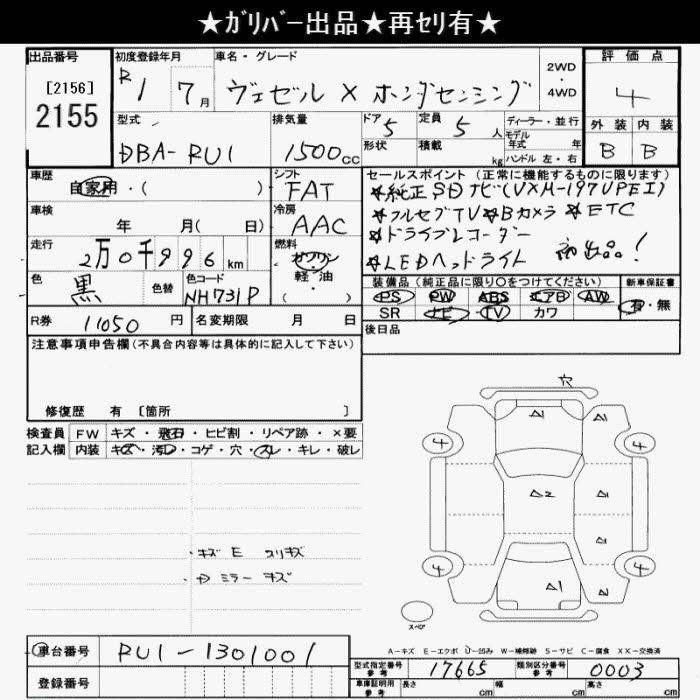 ★ｶﾞﾘﾊﾞｰ出品★再ｾﾘ有★
出品番号
[2156]
2155
初度登録年月
R1 7月
車名・グレード
ヴェゼル X ホンダセンシング
2WD
・
4WD
評価点
4
外装 内装
B B
型式
DBA-RU1
排気量
1500cc
ドア 5
定員 5人
形状
積載 kg
ディーラー・並行
モデル
年式 年
ハンドル 左・右
車歴
自家用・( )
シフト
FAT
車検
年 月( 日)
冷房
AAC
走行
2万0千996km
燃料
ガソリン
軽・油
( )
色
黒
色替
色コード
NH731P
R券 11050円
名変期限 月 日
セールスポイント(正常に機能するものに限ります)
☆純正SDナビ(VXM-197VFEI)
☆フルセグTV☆Bカメラ ☆ETC
☆ドライブレコーダー
☆LEDヘッドライト 初出品!
装備品(純正品に限り○をつけてください)
新車保証書
PS PW ABS エアB AW
SR ナビ TV カワ
有・無
後日品
注意事項申告欄(不具合内容等は具体的に記入して下さい)
修復歴 有 [箇所 ]
検査員
記入欄
FW キズ・飛石・ヒビ割・リペア跡・×要
内装 キズ・汚レ・コゲ・穴・スレ・キレ・破レ
・キズ E スリキズ
・ミラー キズ
穴
A1 A1
4 4
A2 A1
A1
4 4
A1 A1
スペア
A-キズ E-エクボ U-凹み W-補修跡 S-サビ C-腐食 XX-交換済
車台番号
RU1-1301001
登録番号
型式指定番号
参考
17665
類別区分番号
参考
0003
車庫証明用
参考
長さ cm
幅 cm
高さ cm